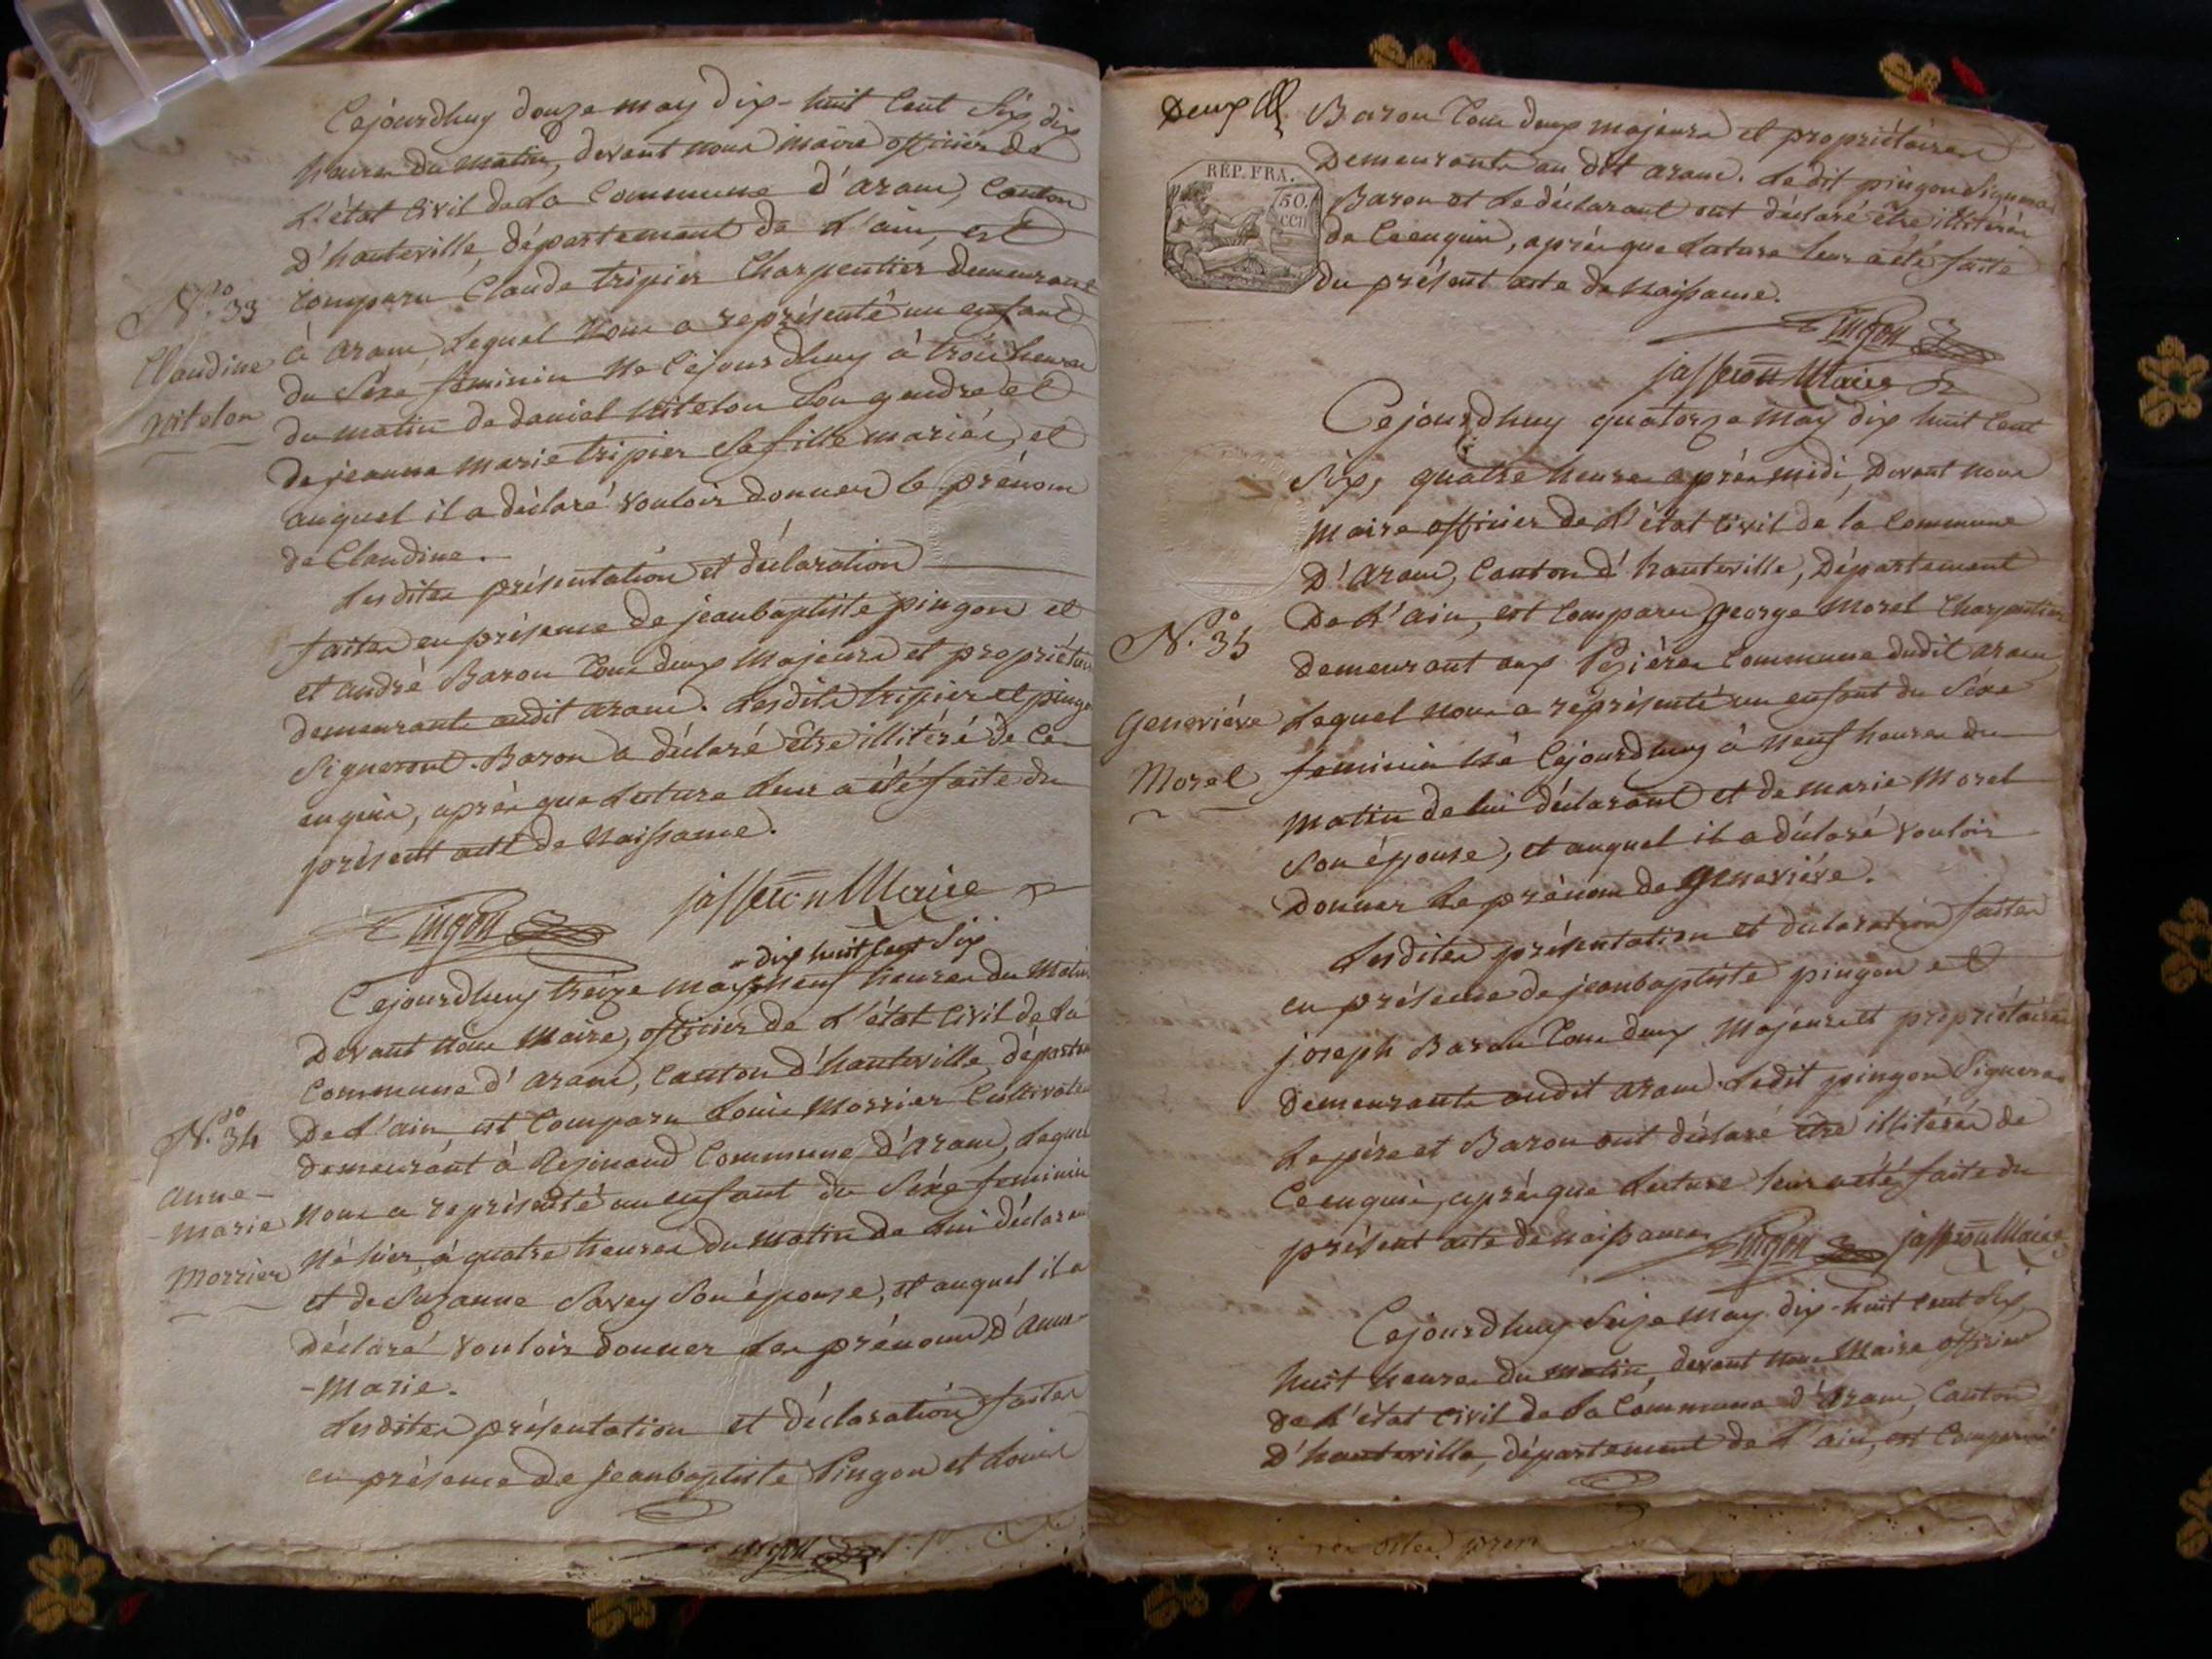 Cejourdhuy douze may dix-huit Cent Six, dix
heures du matin, devant nous maire officier de
L'état Civil de La Commune d'aranc, Canton
d'hauteville, département de L'ain, est
Comparu Claude tripier Charpentier demeurant
N.° 33
Claudine
Nitelon
à aranc, Lequel Nous a représenté un enfant
du Séxe féminin Né Cejourdhuy à trois heures
du matin de daniel Nitelon Son gendre et
de jeanne marie tripier Sa fille mariés, et
auquel il a déclaré vouloir donner le prénom
de Claudine.
Lesdites présentation et déclaration
faites en présence de jeanbaptiste pingon et
et andré Baron Tous deux Majeurs et propriétaires
demeurants audit aranc. Lesdits tripier et pingon
Signeront. Baron a déclaré être illitéré de Ce
enquis, après que Lecture Leur a été faite du
présent acte de Naissance.
Pingon jasseron Maire
- dix huit Cent Six
Cejourdhuy treize may Neuf heures du Matin
Devant Nous Maire, officier de L'état Civil de La
Commune d'aranc, Canton d'hauteville, départem
De L'ain, est Comparu Louis Morrier Cultivateur
N.° 34
anne-
- marie
Morrier
demeurant à Resinand Commune d'aranc, Lequel
Nous a représenté un enfant du Séxe féminin
Né hier, à quatre heures du matin de Lui déclarant
et de Suzanne Savey Son épouse, et auquel il a
Déclaré vouloir donner Les prénoms D'anne-
-Marie.
Lesdites présentation et déclaration faites
en présence de jeanbaptiste Pingon et Louis
Pingon
Deux
REP. FRA.
50. cen
Baron Tous deux majeurs et propriétaires
Demeurants au dit aranc. Le dit pingon Signera
Baron et Le déclarant ont déclaré être illitérés
de Ce enquis, après que Lecture leur a été faite
du présent acte de Naissance.
Pingon
jasseron Maire
Cejourdhuy quatorze May dix huit Cent
Six, quatre heures après midi, Devant nous
Maire officier de L'état Civil de la Commune
D'aranc, Canton d'hauteville, Département
De L'ain, est Comparu george Morel Charpentier
N.° 35
Geneviéve
Morel
demeurant aux Pezières Commune dudit aranc
Lequel nous a représenté un enfant du Sexe
féminin Né Cejourdhuy à Neuf heures du
Matin de lui déclarant et de marie Morel
Son épouse, et auquel il a déclaré vouloir
Donner Le prénom de Geneviéve.
Lesdites présentation et déclaration faites
en présence de jeanbaptiste pingon et
joseph Baron Tous deux Majeurs et propriétaires
demeurants audit aranc. Ledit pingon Signera
Le père et Baron ont déclaré être illitérés de
Ce enquis, après que Lecture leur a été faite du
présent acte de naissance. Pingon jasseron Maire
Cejourdhuy Seize May dix-huit Cent Six,
huit heures du matin, devant nous Maire officier
de L'état Civil de La Commune d'aranc, Canton
D'hauteville, département de L'ain, est Comparu